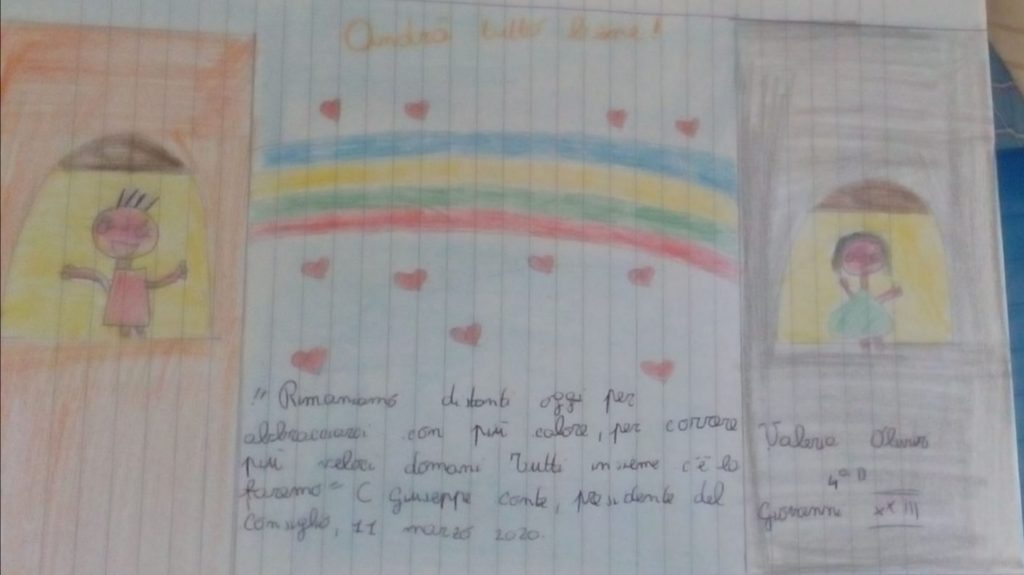 Andrà tutto bene!
"Rimaniamo distanti oggi per
abbracciarci con più calore, per correre
più veloci domani Tutti insieme c'è la
faremo" C Giuseppe Conte, presidente del
Consiglio, 11 marzo 2020.
Valeria
4ª D
Giovanni XXIII